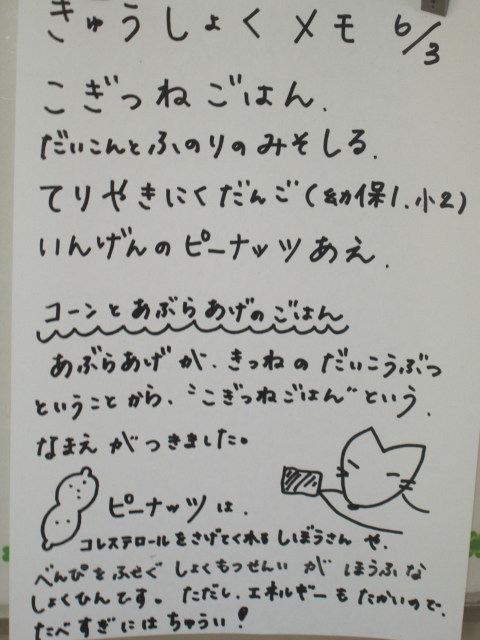 きゅうしょくメモ 6/3
こぎつねごはん.
だいこんとふのりのみそしる.
てりやきにくだんご(幼保1.小2)
いんげんのピーナッツあえ.
コーンとあぶらあげのごはん
あぶらあげが、きつねのだいこうぶつ
ということから、"こぎつねごはん"という.
なまえがつきました。
ピーナッツは.
コレステロールをさげてくれるしぼうさんや.
べんぴをふせぐしょくもつせんいがほうふな
しょくひんです。ただし、エネルギーもたかいので.
たべすぎにはちゅうい!